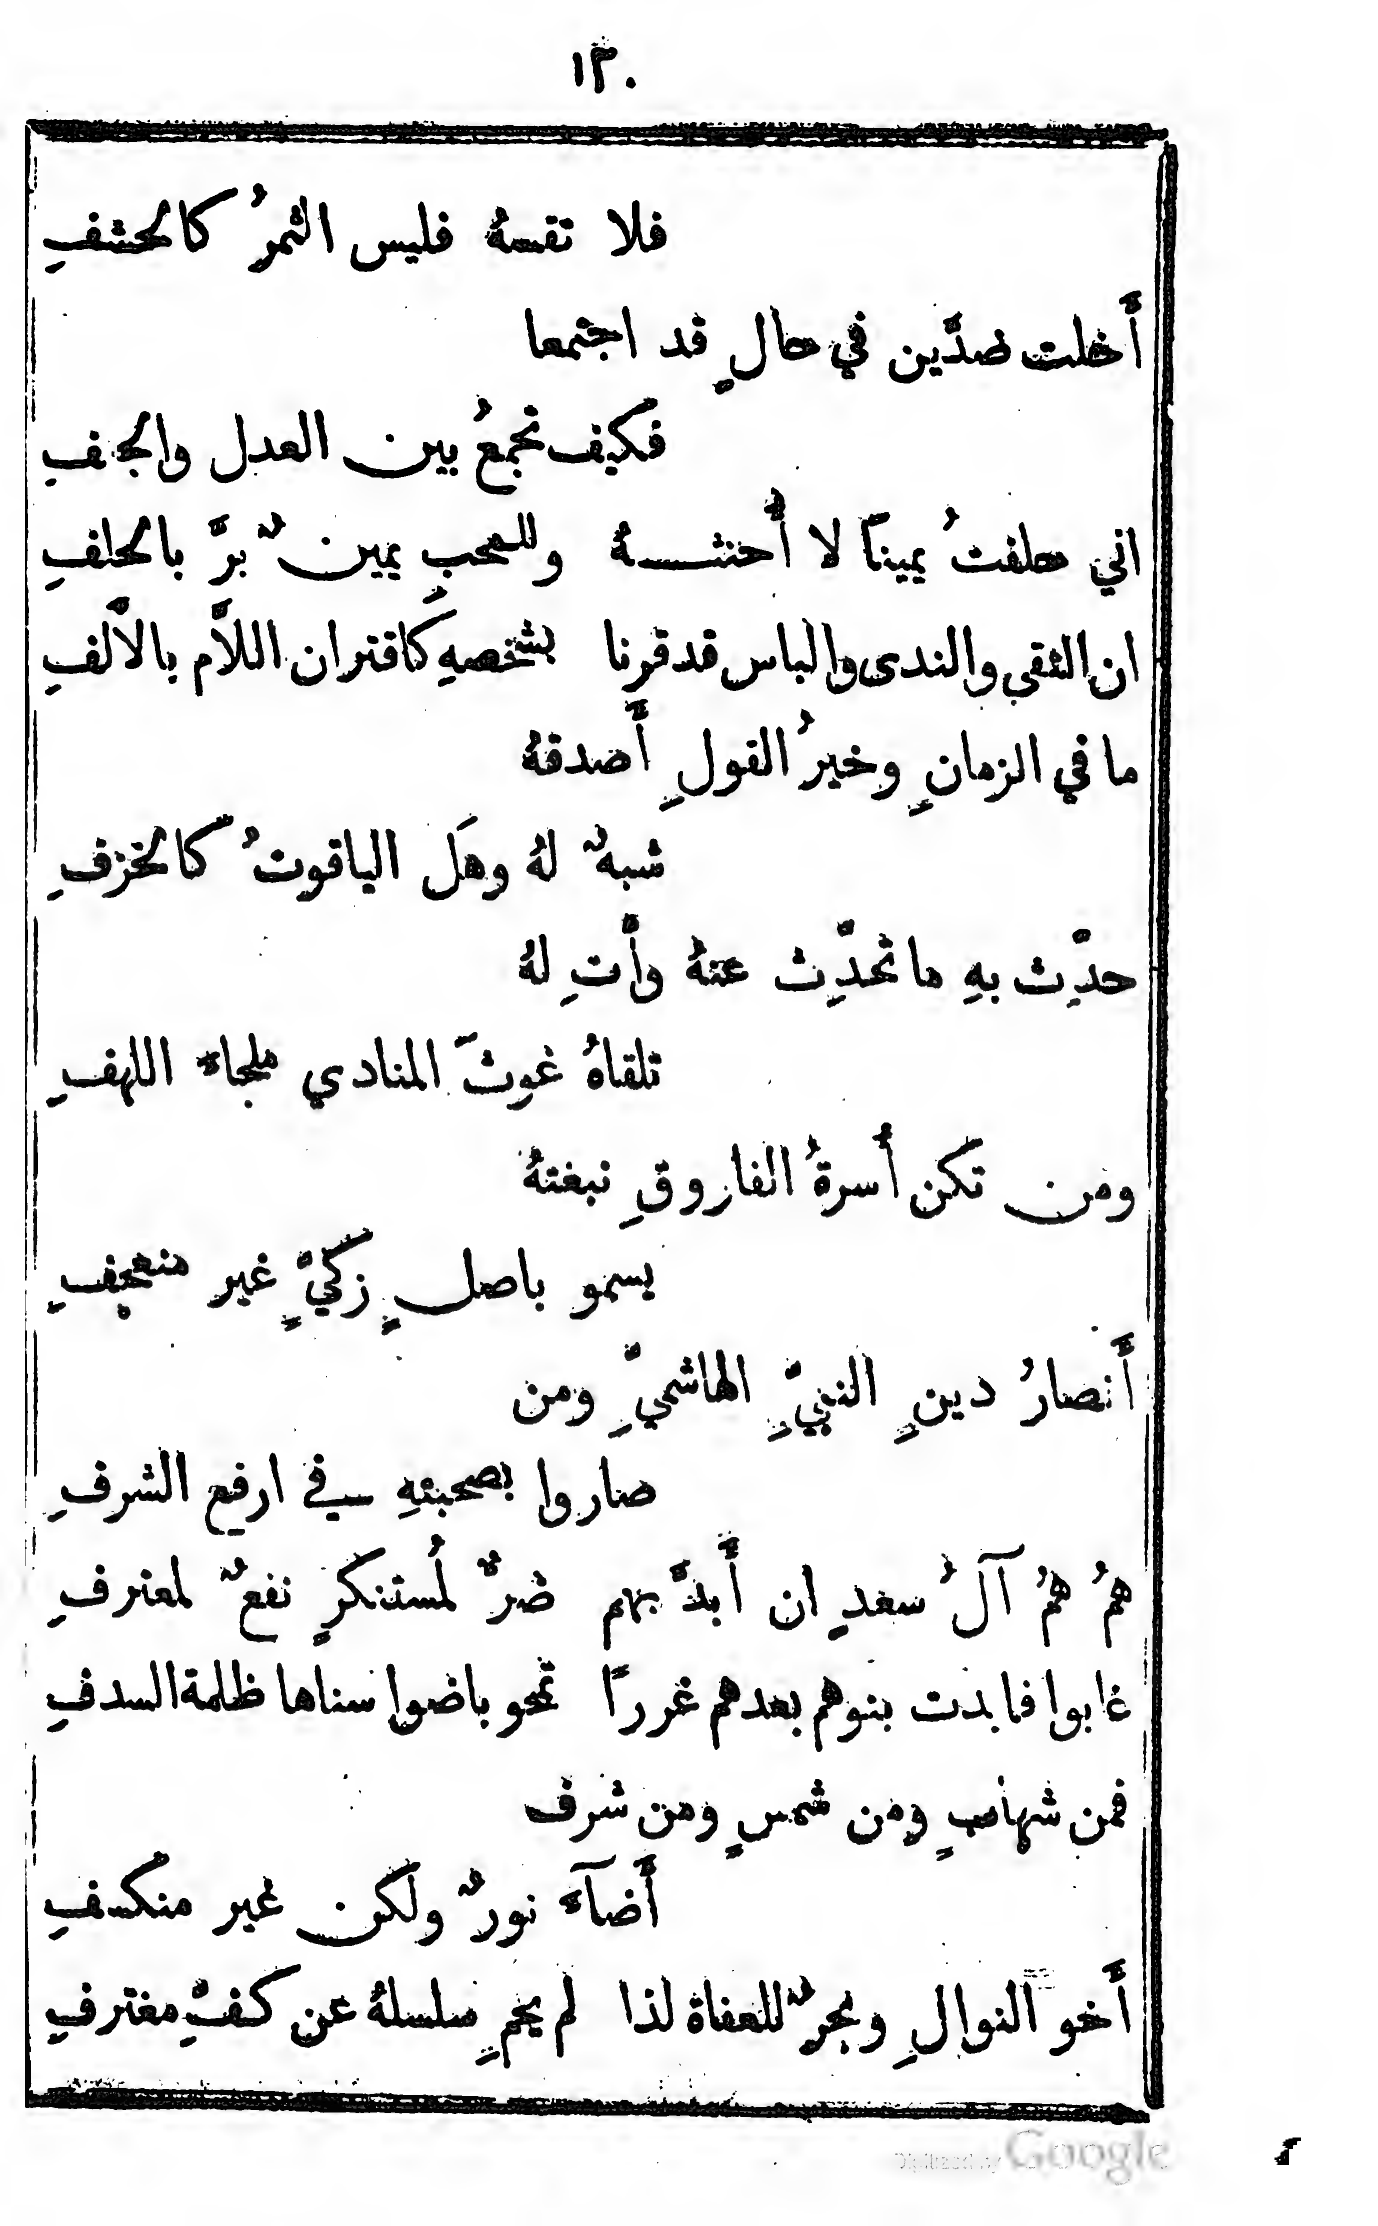 ١٣٠
فلا تقسهُ فليس الثمرُ كالحشفِ
أَخلت ضدَّين في حالٍ قد اجتمعا
فكيف تجمعُ بين العدل والجنفِ
اني حلفتُ يميناً لا أُحنثـهُ وللمحبِ يمينٌ برَّ بالحلفِ
ان التقى والندى والباس قد قرنا بشخصهِ كَاقتران اللاَّم بالأَلفِ
ما في الزمانِ وخيرُ القولِ أَصدقهُ
شبهٌ لهُ وهَل الياقوتُ كالخزفِ
حدِّث بهِ ما تحدِّث عنهُ وأْتِ لهُ
تلقاهُ غوثَ المنادي ملجاءَ اللهفِ
ومن تكن أُسرةُ الفاروقِ نبغتهُ
يسمو باصلٍ زكيٍّ غير منعجفِ
أَنصارُ دينِ النبيِّ الهاشميِّ ومن
صاروا بصحبتهِ في ارفع الشرفِ
همُ همُ آلُ سعدٍ ان أَبدَّ بهم ضرٌّ لمُستنكرٍ نفعٌ لمعترفِ
غابوا فابدت بنوهم بعدهم غررًا تمحو باضوا سناها ظلمة السدفِ
فمن شهابٍ ومن شمسٍ ومن شرف
أَضآءَ نورٌ ولكن غير منكسفِ
أَخو النوالِ وبحرٌ للعفاة لذا لم يحمِ سلسلهُ عن كفِّ مغترفِ
Digitized by Google